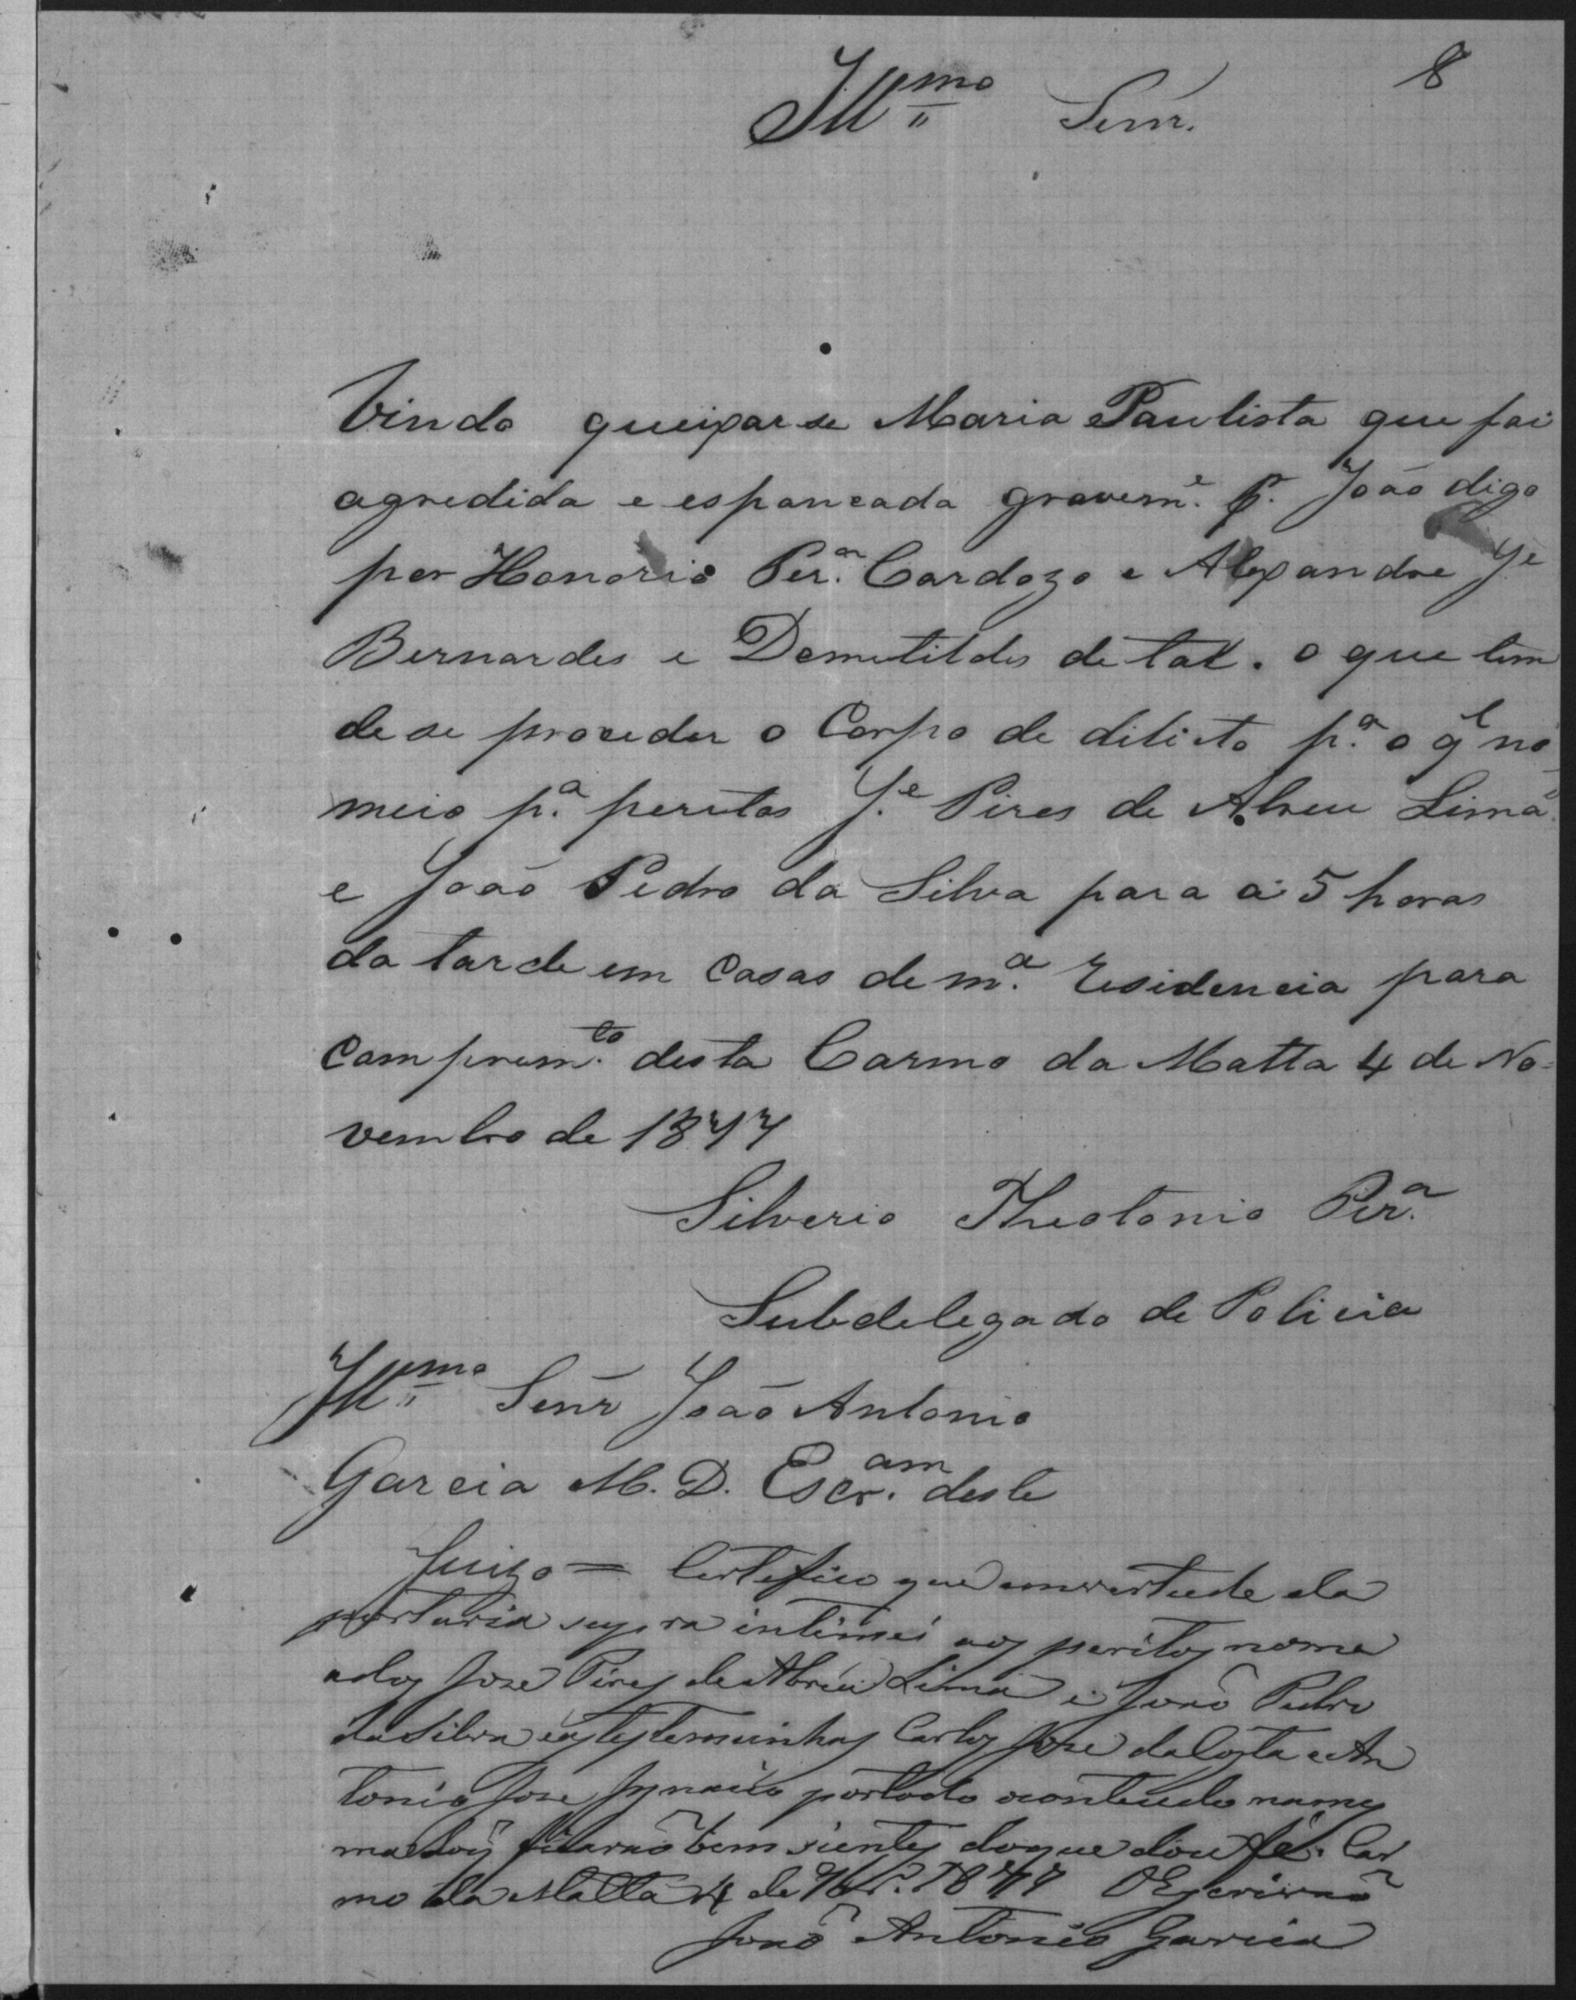 8
Illmo Senr.
Vindo queixar se Maria Paulista que foi
agredida e espancada gravemte. pr. João digo
por Honorio Pera. Cardozo e Alexandre Je
Bernardes e Demetildes de tal. o que tem
de se proceder o Corpo de dilicto pa. o q̃ no
meio pa. peritos Je. Pires de Abreu Lima
e João Pedro da Silva para as 5 horas
da tarde em Casas de ma. Residencia para
Compremto. desta Carmo da Matta 4 de No=
vembro de 1877
Silverio Theotonio Pera.
Subdelegado de Policia
Illmo Senr João Antonio
Garcia M. D. Escram. deste
Juizo = Certefico que em vertude da
portaria supra intimei aos peritos nome
ados Jose Pires de Abreu Lima e João Pedro
da Silva e as testemunhas Carlos Jose da Costa e An
tonio Jose Ignacio por todo o conteudo na mes
ma e ficarão bem sientes do que dou fé. Car
mo da Matta 4 de 9br. 1877 O Escrivaõ
João Antonio Garcia